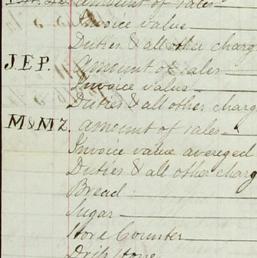 Amount of sales
Invoice value
Duties & all other charg
J.E.P. Amount of sales
Invoice value
Duties & all other charg
M&MZ. Amount of sales
Invoice value averaged
Duties & all other charg
Bread
Sugar
Store Counter
Drip Stone